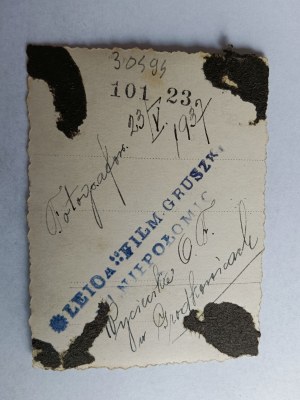 30595
101 23
23 V. 1937
Fotografow.
LEICA FILM GRUSZK
NIEPOŁOMIC
Wycieczka O. T.
w Grodkowicach